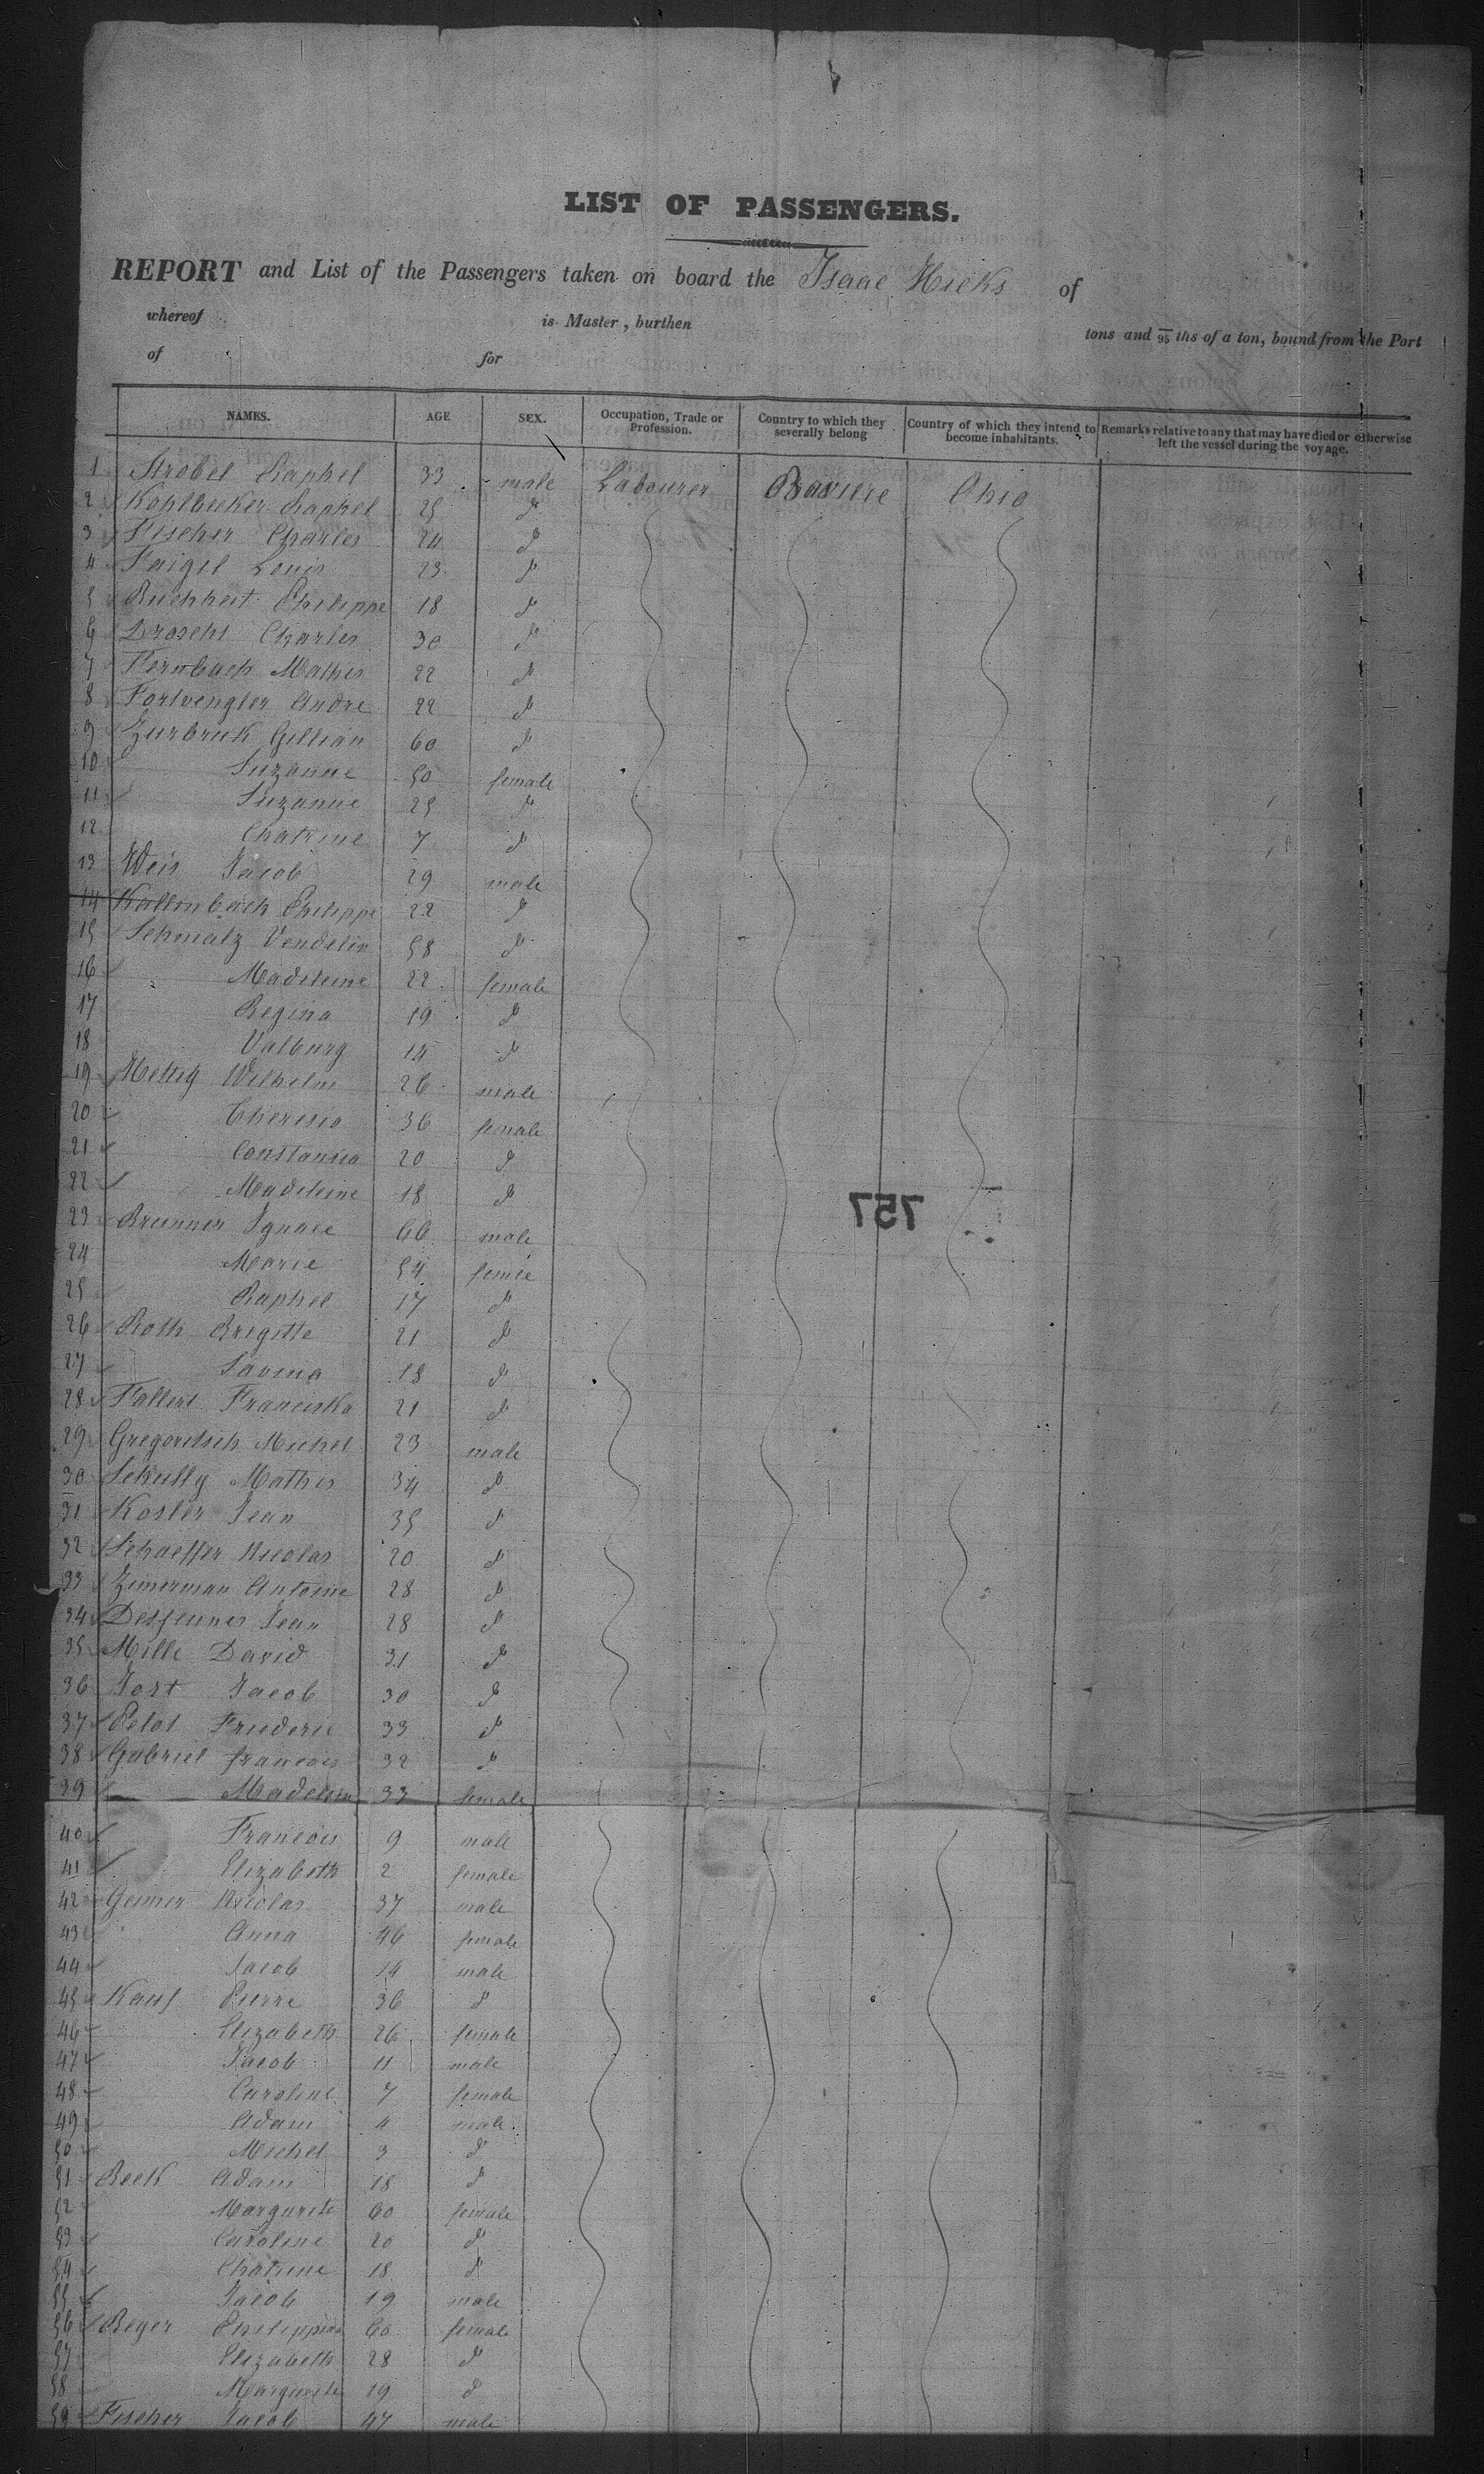 LIST OF PASSENGERS.
REPORT and List of the Passengers taken on board the Isaac Hicks of
whereof is Master, burthen tons and 95 ths of a ton, bound from the Port
of for
NAMES. AGE SEX. Occupation, Trade or Profession. Country to which they severally belong Country of which they intend to become inhabitants. Remarks relative to any that may have died or otherwise left the vessel during the voyage.
1 Strobel Raphel 33 male Labourer Baviere Ohio
2 Kohlbecker Raphel 25 do
3 Fischer Charles 24 do
4 Faigel Louis 23 do
5 Buchheit Philippe 18 do
6 Charles 30 do
7 Fernbach Mathis 22 do
8 Fortvengler Andre 22 do
9 Zurbruk Gillian 60 do
10 Suzanne 50 female
11 Suzanne 25 do
12 Chatrine 7 do
13 Weis Jacob 29 male
14 Kallenbach Philippe 22 do
15 Schmalz Vendelin 58 do
16 Madeleine 22 female
17 Regina 19 do
18 Valburg 14 do
19 Mettig Wilhelm 26 male
20 Theresia 36 female
21 Constantia 20 do
22 Madeleine 18 do
23 Brunner Ignace 66 male
24 Marie 54 femile
25 Raphel 17 do
26 Roth Brigitte 21 do
27 Savina 18 do
28 Fallert Franciska 21 do
29 Gregoritsch Michel 23 male
30 Schully Mathis 34 do
31 Kosler Jean 35 do
32 Schaeffer Nicolas 20 do
33 Zimerman Antoine 28 do
34 Desjeunes Jean 28 do
35 Mille David 31 do
36 Jost Jacob 30 do
37 Pelot Friederic 33 do
38 Gabriel francois 32 do
39 Madeleine 33 female
40 Francois 9 male
41 Elizabeth 2 female
42 Geiner Nicolas 37 male
43 Anna 46 female
44 Jacob 14 male
45 Kauf Pierre 36 do
46 Elizabeth 26 female
47 Jacob 11 male
48 Caroline 7 female
49 Adam 4 male
50 Michel 3 do
51 Beck Adam 18 do
52 Margurite 60 female
53 Caroline 20 do
54 Chatrine 18 do
55 Jacob 19 male
56 Beyer Philippina 60 female
57 Elizabeth 28 do
58 Margurite 19 do
59 Fischer Jacob 47 male
757